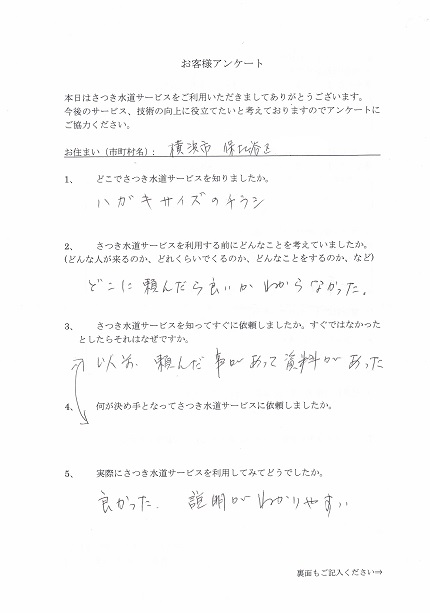 お客様アンケート
本日はさつき水道サービスをご利用いただきましてありがとうございます。
今後のサービス、技術の向上に役立てたいと考えておりますのでアンケートに
ご協力ください。
お住まい(市町村名): 横浜市 保土ヶ谷区
1、 どこでさつき水道サービスを知りましたか。
ハガキサイズのチラシ
2、 さつき水道サービスを利用する前にどんなことを考えていましたか。
(どんな人が来るのか、どれくらいでくるのか、どんなことをするのか、など)
どこに頼んだら良いかわからなかった。
3、 さつき水道サービスを知ってすぐに依頼しましたか。すぐではなかった
としたらそれはなぜですか。
以前、頼んだ事があって資料があった
4、 何が決め手となってさつき水道サービスに依頼しましたか。
5、 実際にさつき水道サービスを利用してみてどうでしたか。
良かった。 説明がわかりやすい
裏面もご記入ください⇒